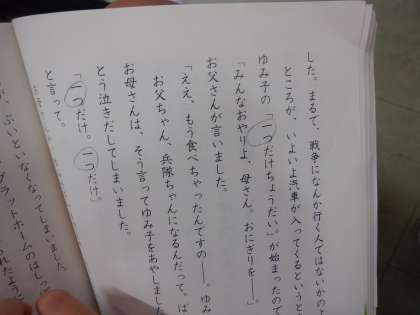 した。まるで、戦争になんか行く人ではないかのよ
ところが、いよいよ汽車が入ってくるというと
ゆみ子の「一つだけちょうだい。」が始まったので
「みんなおやりよ、母さん。おにぎりを――。」
お父さんが言いました。
「ええ、もう食べちゃったんですの――。ゆみ
お父ちゃん、兵隊ちゃんになるんだって。ば
お母さんは、そう言ってゆみ子をあやしました
とう泣きだしてしまいました。
「一つだけ。一つだけ。」
と言って。
ぷいといなくなってしまいました。
プラットホームのはしっ
られたよう